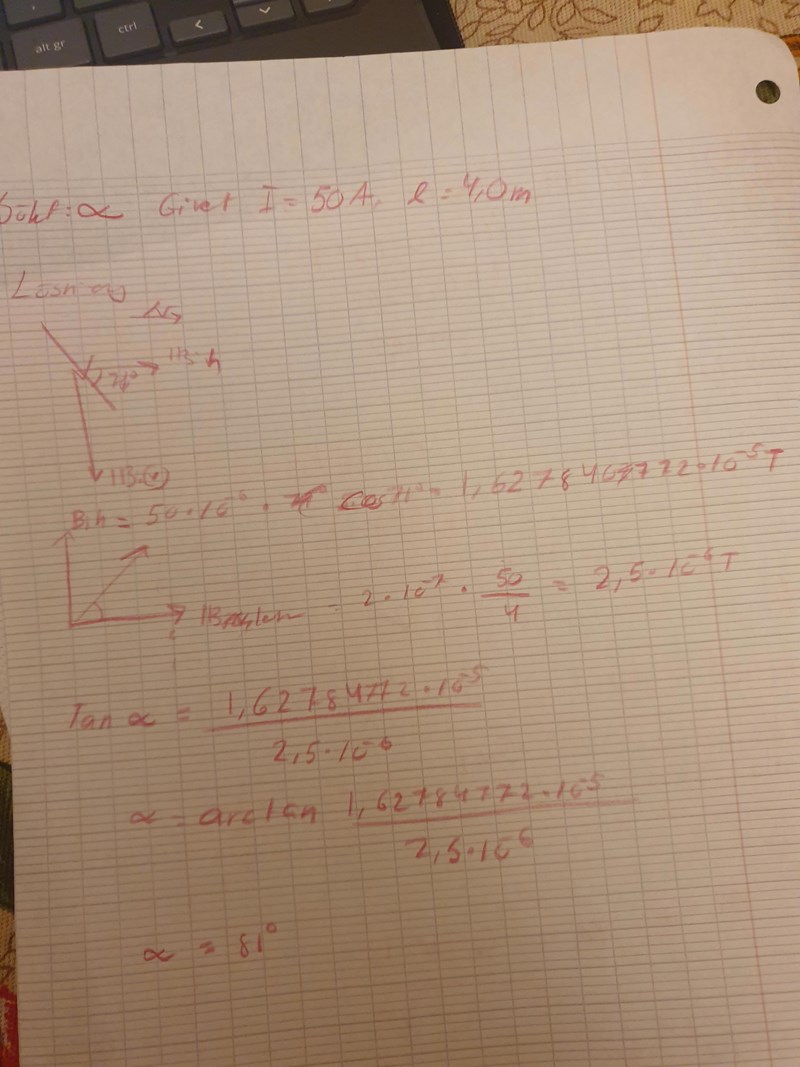 alt gr
ctrl
<
Sökt: α Givet I = 50A, l = 4,0m
Lösning
N
71° IB h
IB v
B,h = 50·10⁻⁶ · cos 71° = 1,6278407772·10⁻⁵ T
2·10⁻⁷ · 50/4 = 2,5·10⁻⁶ T
Tan α = 1,62784772·10⁻⁵
2,5·10⁻⁶
α = arctan 1,62784772·10⁻⁵
2,5·10⁻⁶
α = 81°